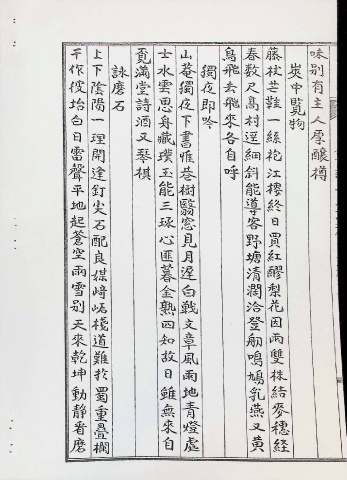 味別有主人原釀樽
炎中覽物
藤杖芒鞋一絲袍江樓終日買紅醪梨花因雨雙株結麥穗經
春數尺高村逕細斜能導客野塘清濶洽登舠鳴鳩乳燕又黃
鳥飛去飛來各自呼
獨夜即吟
山菴獨夜下書惟巷樹翳窓見月遲白戰文章風雨地青燈處
士水雲思身藏璞玉能三琢心匪暮金熟四知故日雖無來自
覓滿堂詩酒又琴棋
詠磨石
上下陰陽一理開逢釘尖石配良媒崎嶇棧道難於蜀重疊欄
干作彼坮白日雷聲平地起蒼空雨雪別天來乾坤動靜看磨